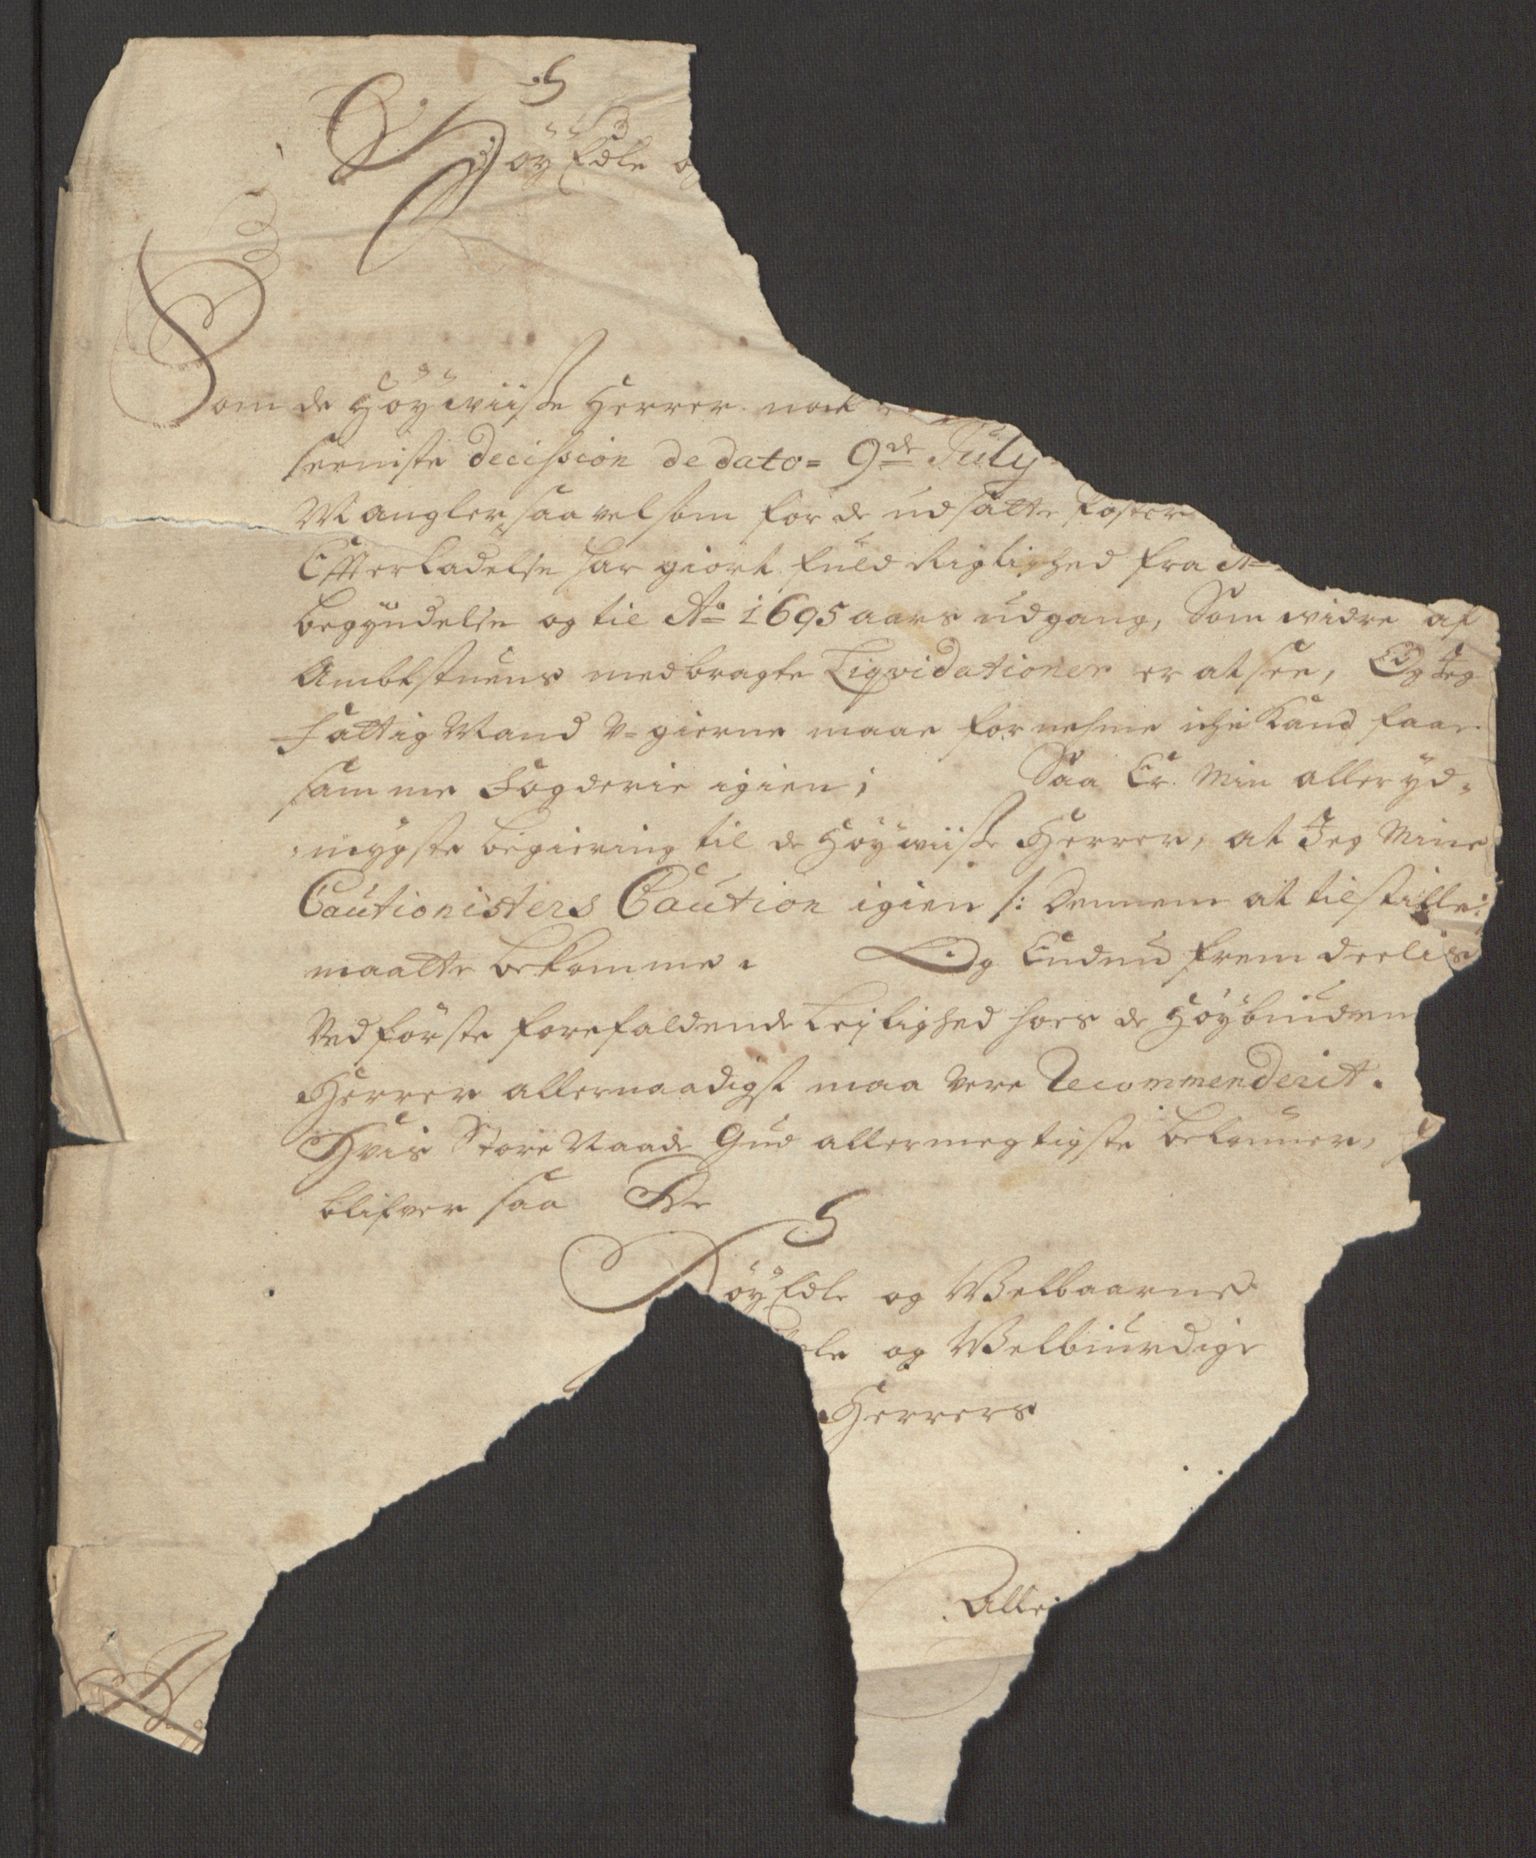 Höy Edle o
Som de Höywiisse Herrer nock
seeniste decission de dato= 9de July
Mangler, saavelsom for de udsatte Poster
Efterladelse har giort fuld Rigtighed fra Ao
begyndelse og til Ao 1695 aars udgang, Som widre af
Ambtstuens medbragte Liqvidationer er at see, Og Jeg
Fattig Mand V-gierne maae fornehme iche kand faae
samme Fogderie igien;          Saa Er Min alleryd=
=mygste begiering til de Höywiisse Herrer, at Jeg Mine
Cautionisters Caution igien /: Dennem at tilstille:
maatte bekomme.          Og Endnu fremdeelis
Ved förste forefaldende Leylighed hoes de Höybiudene
Herrer allernaadigst maa vere Recommenderit.
Hvis Store Naade Gud allermegtigste belönner,
blifver saa     De
Höy Edle og Welbaarne
dle og Welbiurdige
Herrers
Alle